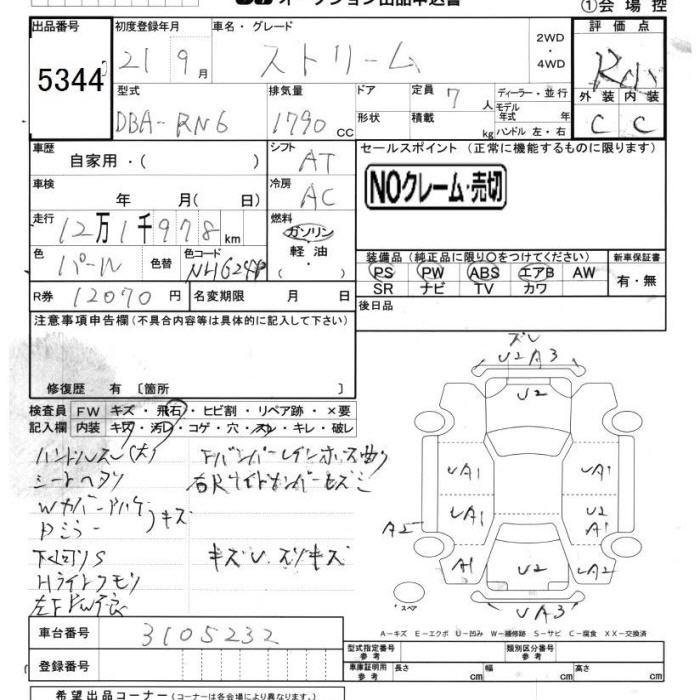 オークション出品申込書
①会場控
出品番号
5344
初度登録年月
21 9月
車名・グレード
ストリーム
2WD
・
4WD
評価点
外装 内装
C C
型式
DBA-RN6
排気量
1790 CC
ドア
形状
定員
7人
積載
kg
ディーラー・並行
モデル年式 年
ハンドル 左・右
車歴
自家用・( )
シフト
AT
セールスポイント (正常に機能するものに限ります)
NOクレーム・売切
車検
年 月(日)
冷房
AC
走行
12万1千978km
燃料
ガソリン
・
軽油
・
色
パール
色替
色コード
NH624P
装備品 (純正品に限り○をつけてください)
PS PW ABS エアB AW
SR ナビ TV カワ
新車保証書
有・無
R券 12070円
名変期限 月 日
後日品
注意事項申告欄 (不具合内容等は具体的に記入して下さい)
修復歴 有 〔箇所 〕
検査員記入欄
FW キズ・飛石・ヒビ割・リペア跡・×要
内装 キズ・汚レ・コゲ・穴・スレ・キレ・破レ
ハンドルスレ(大)
シートヘタリ
キズ
Pミラー
下廻りS
Hライトクモリ
キズU、スリキズ
ズレ
U2A3
U2
UA1
UA1
UA1
U2
A1
A2
A1
U2
UA2
UA3
スペア
A-キズ E-エクボ U-凹み W-補修跡 S-サビ C-腐食 XX-交換済
車台番号
3105232
登録番号
型式指定番号
参考
類別区分番号
参考
車庫証明用
参考
長さ cm
幅 cm
高さ cm
希望出品コーナー (コーナーは会場により異なります。)